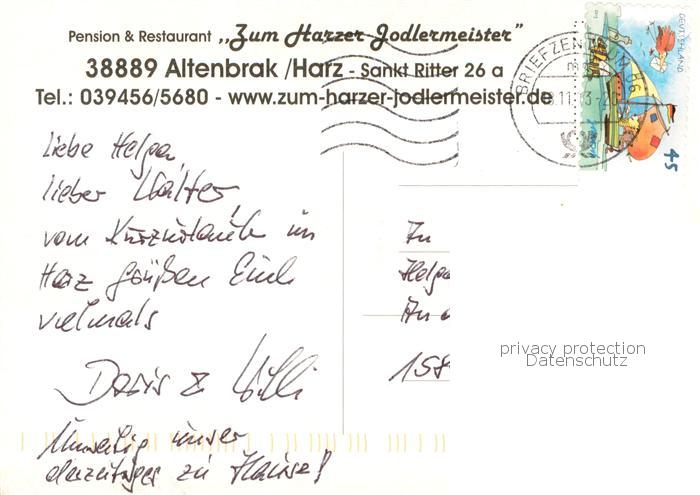 Pension & Restaurant „Zum Harzer Jodlermeister"
38889 Altenbrak /Harz - Sankt Ritter 26 a
Tel.: 039456/5680 - www.zum-harzer-jodlermeister.de
BRIEFZENTRUM 86
DEUTSCHLAND
45
Liebe Helga,
lieber Walter,
vom Kurzurlaub im
Harz grüßen Euch
vielmals
Doris & Willi
unser
derzeitiges zu Hause!
An
Helga
An d
158
privacy protection
Datenschutz